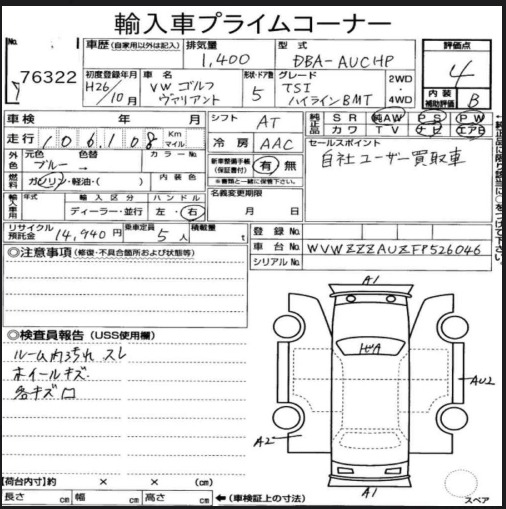 輸入車プライムコーナー
No. 76322
車歴 (自家用以外は記入)
排気量 1,400
型式 DBA-AUCHP
評価点 4
初度登録年月 H26/10月
車名 VW ゴルフ ヴァリアント
形状・ドア数 5
グレード TSI ハイラインBMT
2WD ・ 4WD
内装補助評価 B
車検 年 月
シフト AT
純正品 SR 純AW PS PW
カワ TV ナビ エアB
走行 106,108 Km マイル
冷房 AAC
セールスポイント
自社ユーザー買取車
外色 元色 色替 カラーNo.
ブルー →
新車整備手帳(保証書付) 有・無
※書類と一緒に保管下さい。
燃料 ガソリン・軽油・( )
内装色
名義変更期限
月 日
輸入車用 年式 輸入区分 ハンドル
ディーラー・並行 左・右
リサイクル預託金 14,940円
乗車定員 5人
積載量 t
登録No.
車台No. WVWZZZAUZFP526046
シリアルNo.
◎注意事項 (修復・不具合箇所および状態等)
A1
◎検査員報告 (USS使用欄)
ルーム内汚れ スレ
ホイールキズ
各キズ
AU2
A2
A1
【荷台内寸】約 × × (cm)
長さ cm 幅 cm 高さ cm ←(車検証上の寸法)
スペア